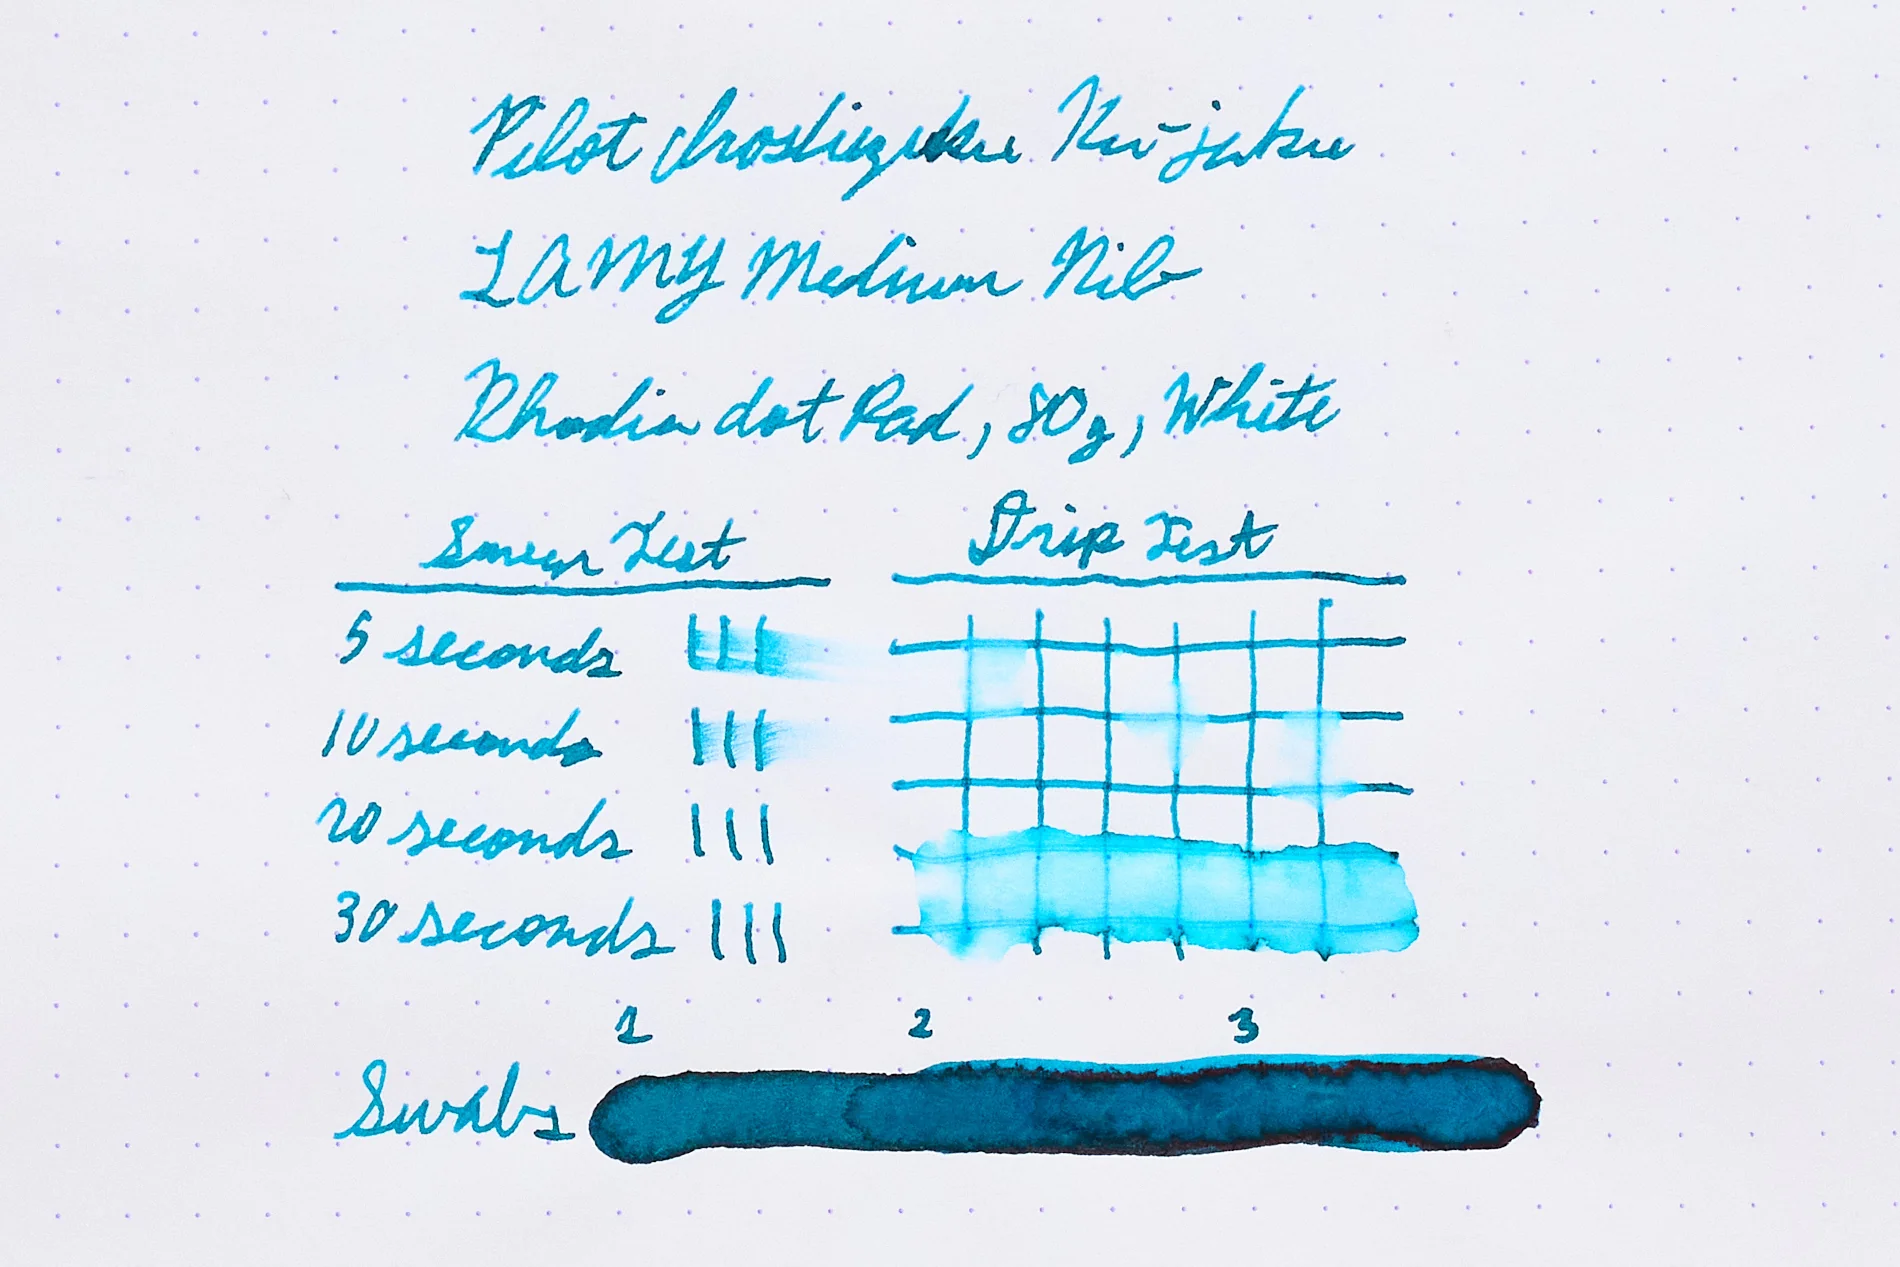 Pilot Iroshizuku Ku-jaku
LAMY Medium Nib
Rhodia dot Pad, 80g, White
Smear Test
5 seconds
10 seconds
20 seconds
30 seconds
Drip Test
1 2 3
Swabs